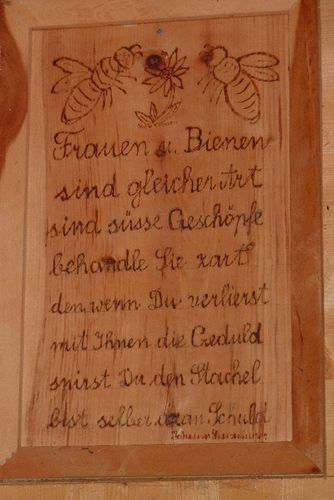 Frauen u. Bienen
sind gleicher Art
sind süsse Geschöpfe
behandle Sie zart
den wenn Du verlierst
mit Ihnen die Geduld
spirst Du den Stachel
bist selber dran Schuld